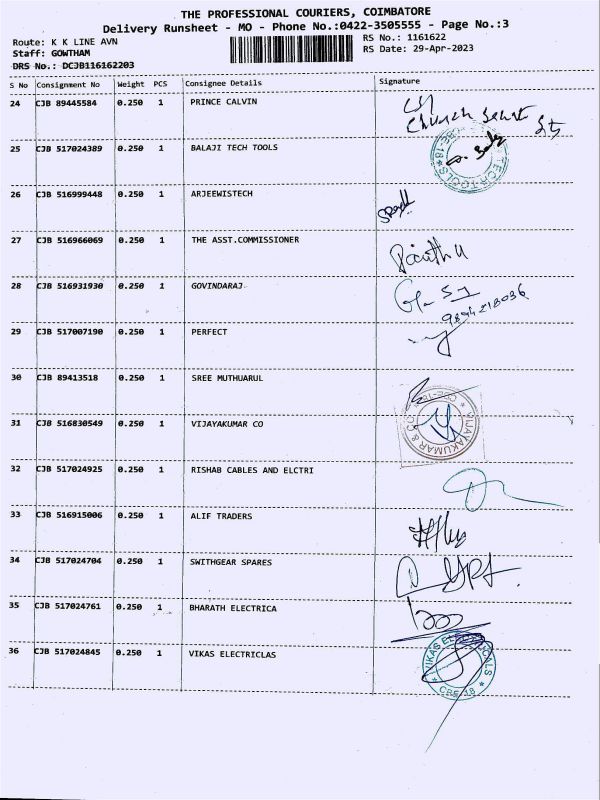 THE PROFESSIONAL COURIERS, COIMBATORE
Delivery Runsheet - MO - Phone No.:0422-3505555 - Page No.:3
Route: K K LINE AVN
RS No.: 1161622
Staff: GOWTHAM
RS Date: 29-Apr-2023
DRS No.: DCJB116162203
S No Consignment No Weight PCS Consignee Details Signature
24 CJB 89445584 0.250 1 PRINCE CALVIN
Church
25 CJB 517024389 0.250 1 BALAJI TECH TOOLS
CBE-18 TECH TOOLS
26 CJB 516999448 0.250 1 ARJEEWISTECH
27 CJB 516966069 0.250 1 THE ASST.COMMISSIONER
28 CJB 516931930 0.250 1 GOVINDARAJ
9894218036
29 CJB 517007190 0.250 1 PERFECT
30 CJB 89413518 0.250 1 SREE MUTHUARUL
31 CJB 516830549 0.250 1 VIJAYAKUMAR CO
VIJAYAKUMAR & CO CBE-18
32 CJB 517024925 0.250 1 RISHAB CABLES AND ELCTRI
33 CJB 516915006 0.250 1 ALIF TRADERS
34 CJB 517024704 0.250 1 SWITHGEAR SPARES
35 CJB 517024761 0.250 1 BHARATH ELECTRICA
36 CJB 517024845 0.250 1 VIKAS ELECTRICLAS
VIKAS ELECTRICALS CBE-18